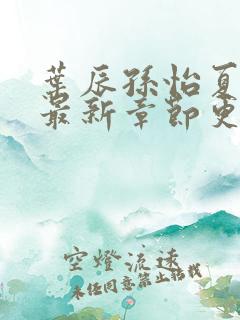 葉辰孫怡夏
最新章節更
空燈流遠
未经同意禁止转载